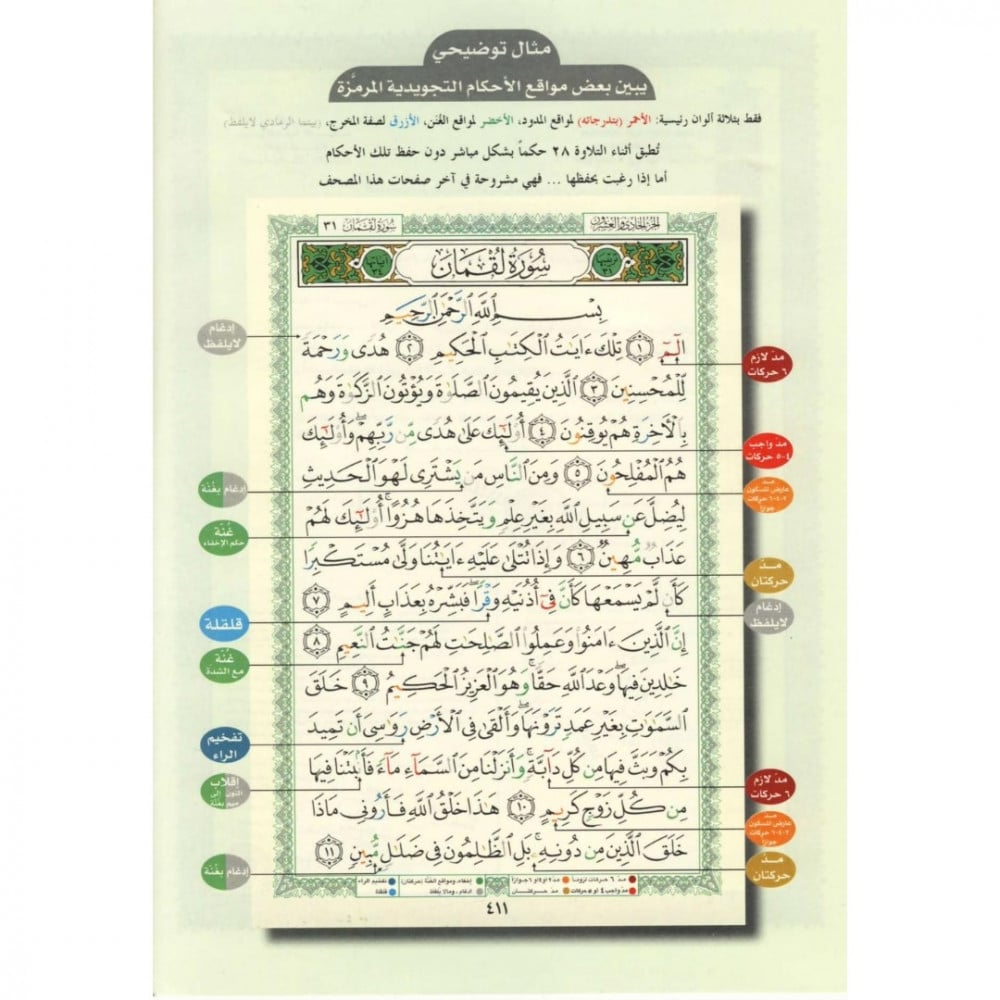 مثال توضيحي
يبين بعض مواقع الأحكام التجويدية المرمزة
فقط بثلاثة ألوان رئيسية: الأحمر (بتدرجاته) لمواقع المدود، الأخضر لمواقع الغنن، الأزرق لصفة المخرج، (بينما الرمادي لايلفظ)
تُطبق أثناء التلاوة ٢٨ حكماً بشكل مباشر دون حفظ تلك الأحكام
أما إذا رغبت بحفظها ... فهي مشروحة في آخر صفحات هذا المصحف
الجزء الحادي والعشرون
سورة لقمان ٣١
ترتيبها ٣١
سُورَةُ لُقۡمَان
آياتها ٣٤
بِسۡمِ ٱللَّهِ ٱلرَّحۡمَٰنِ ٱلرَّحِيمِ
الٓمٓ ١ تِلۡكَ ءَايَٰتُ ٱلۡكِتَٰبِ ٱلۡحَكِيمِ ٢ هُدٗى وَرَحۡمَةٗ
لِّلۡمُحۡسِنِينَ ٣ ٱلَّذِينَ يُقِيمُونَ ٱلصَّلَوٰةَ وَيُؤۡتُونَ ٱلزَّكَوٰةَ وَهُم
بِٱلۡأٓخِرَةِ هُمۡ يُوقِنُونَ ٤ أُوْلَٰٓئِكَ عَلَىٰ هُدٗى مِّن رَّبِّهِمۡۖ وَأُوْلَٰٓئِكَ
هُمُ ٱلۡمُفۡلِحُونَ ٥ وَمِنَ ٱلنَّاسِ مَن يَشۡتَرِي لَهۡوَ ٱلۡحَدِيثِ
لِيُضِلَّ عَن سَبِيلِ ٱللَّهِ بِغَيۡرِ عِلۡمٖ وَيَتَّخِذَهَا هُزُوًاۚ أُوْلَٰٓئِكَ لَهُمۡ
عَذَابٞ مُّهِينٞ ٦ وَإِذَا تُتۡلَىٰ عَلَيۡهِ ءَايَٰتُنَا وَلَّىٰ مُسۡتَكۡبِرٗا
كَأَن لَّمۡ يَسۡمَعۡهَا كَأَنَّ فِيٓ أُذُنَيۡهِ وَقۡرٗاۖ فَبَشِّرۡهُ بِعَذَابٍ أَلِيمٍ ٧
إِنَّ ٱلَّذِينَ ءَامَنُواْ وَعَمِلُواْ ٱلصَّٰلِحَٰتِ لَهُمۡ جَنَّٰتُ ٱلنَّعِيمِ ٨
خَٰلِدِينَ فِيهَاۖ وَعۡدَ ٱللَّهِ حَقّٗاۚ وَهُوَ ٱلۡعَزِيزُ ٱلۡحَكِيمُ ٩ خَلَقَ
ٱلسَّمَٰوَٰتِ بِغَيۡرِ عَمَدٖ تَرَوۡنَهَاۖ وَأَلۡقَىٰ فِي ٱلۡأَرۡضِ رَوَٰسِيَ أَن تَمِيدَ
بِكُمۡ وَبَثَّ فِيهَا مِن كُلِّ دَآبَّةٖۚ وَأَنزَلۡنَا مِنَ ٱلسَّمَآءِ مَآءٗ فَأَنۢبَتۡنَا فِيهَا
مِن كُلِّ زَوۡجٖ كَرِيمٍ ١٠ هَٰذَا خَلۡقُ ٱللَّهِ فَأَرُونِي مَاذَا
خَلَقَ ٱلَّذِينَ مِن دُونِهِۦۚ بَلِ ٱلظَّٰلِمُونَ فِي ضَلَٰلٖ مُّبِينٖ ١١
مدّ لازم
٦ حركات
مد واجب
٤-٥ حركات
مد
عارض للسكون
٢-٤-٦ حركات
جوازاً
مدّ
حركتان
إدغام
لايلفظ
مدّ لازم
٦ حركات
مد
عارض للسكون
٢-٤-٦ حركات
جوازاً
مدّ
حركتان
إدغام
لايلفظ
إدغام بغنة
غُنّة
حكم الإخفاء
قلقلة
غُنّة
مع الشدة
تفخيم
الراء
إقلاب
النون إلى
ميم بغنة
إدغام بغنة
مدّ ٦ حركات لزوماً
مدّ ٢ أو ٤ أو ٦ جوازاً
إخفاء، ومواقع الغنّة (حركتان)
تفخيم الراء
مدّ واجب ٤ أو ٥ حركات
مدّ حركتان
ادغام، ومالا يُلفظ
قلقلة
٤١١